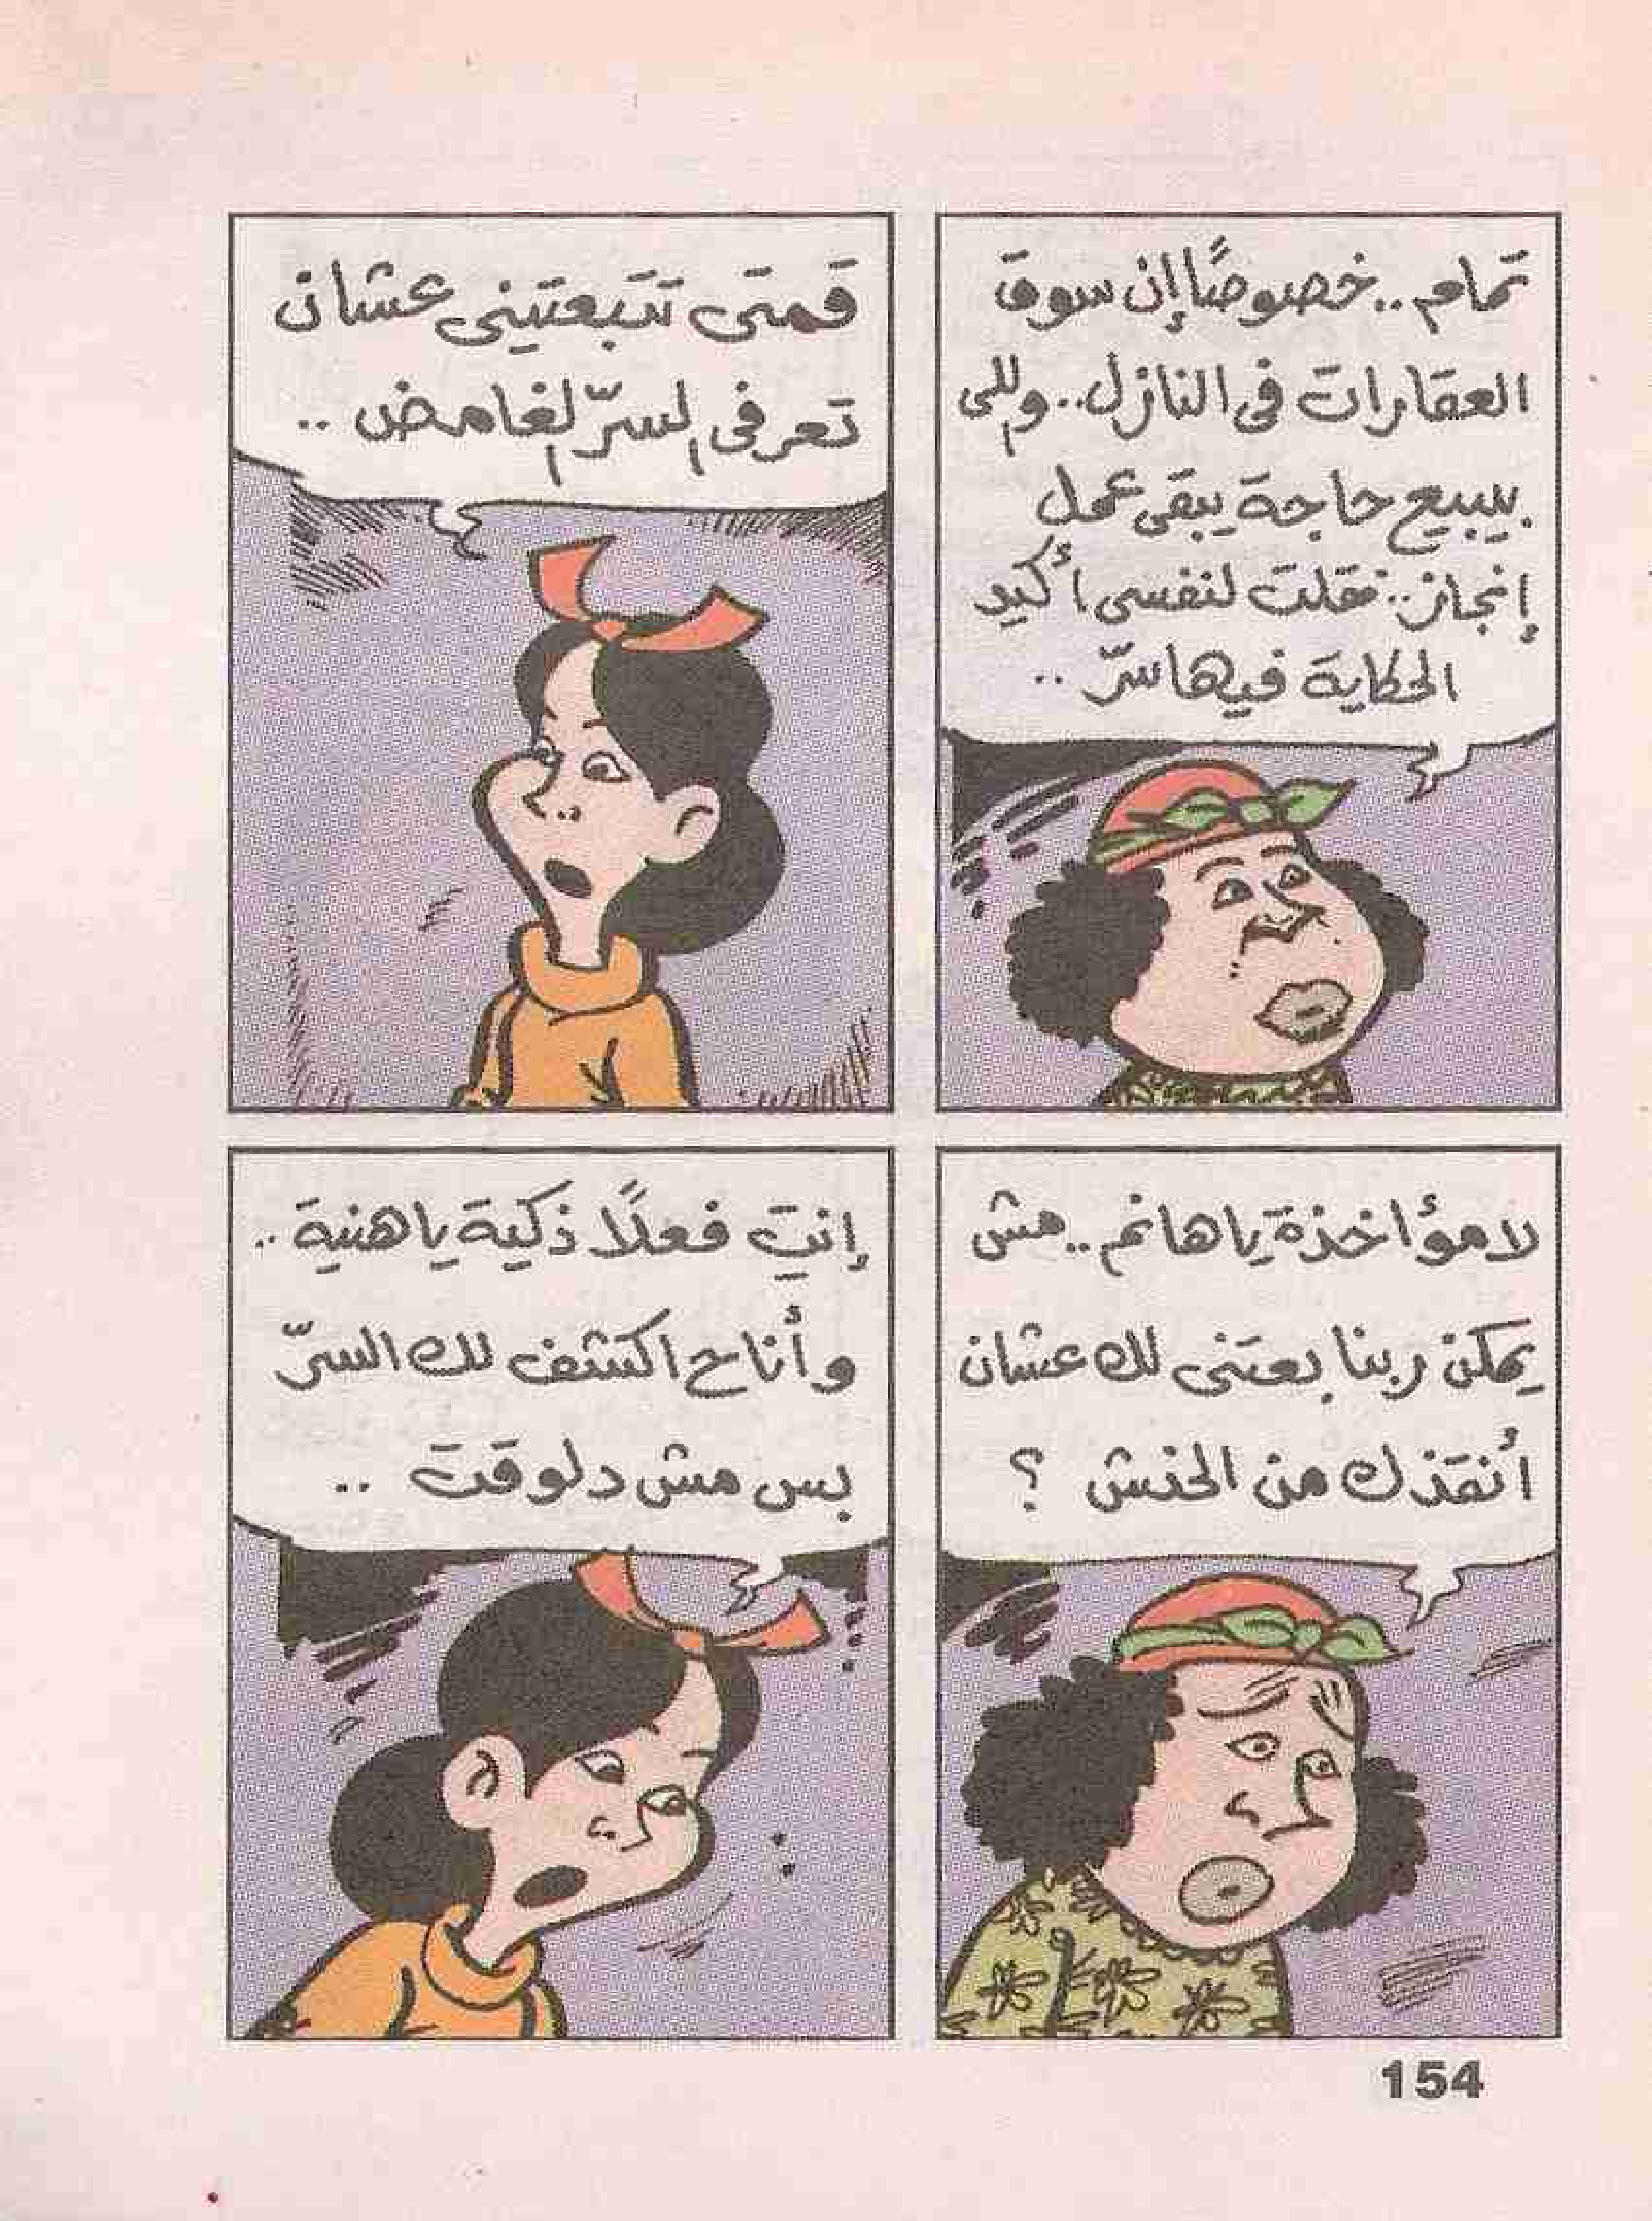 تمام.. خصوصًا إن سوق
العقارات فى النازل.. واللى
يبيع حاجة يبقى عمل
إنجاز.. فقلت لنفسى أكيد
الحكاية فيها سرّ ..
قمتى تتبعتينى عشان
تعرفى السرّ الغامض ..
لامؤاخذة ياهانم.. مش
يمكن ربنا بعتنى لك عشان
أنقذك من الحنش ؟
إنتِ فعلًا ذكية ياهنية ..
وأنا ح اكشف لك السرّ
بس مش دلوقت ..
154